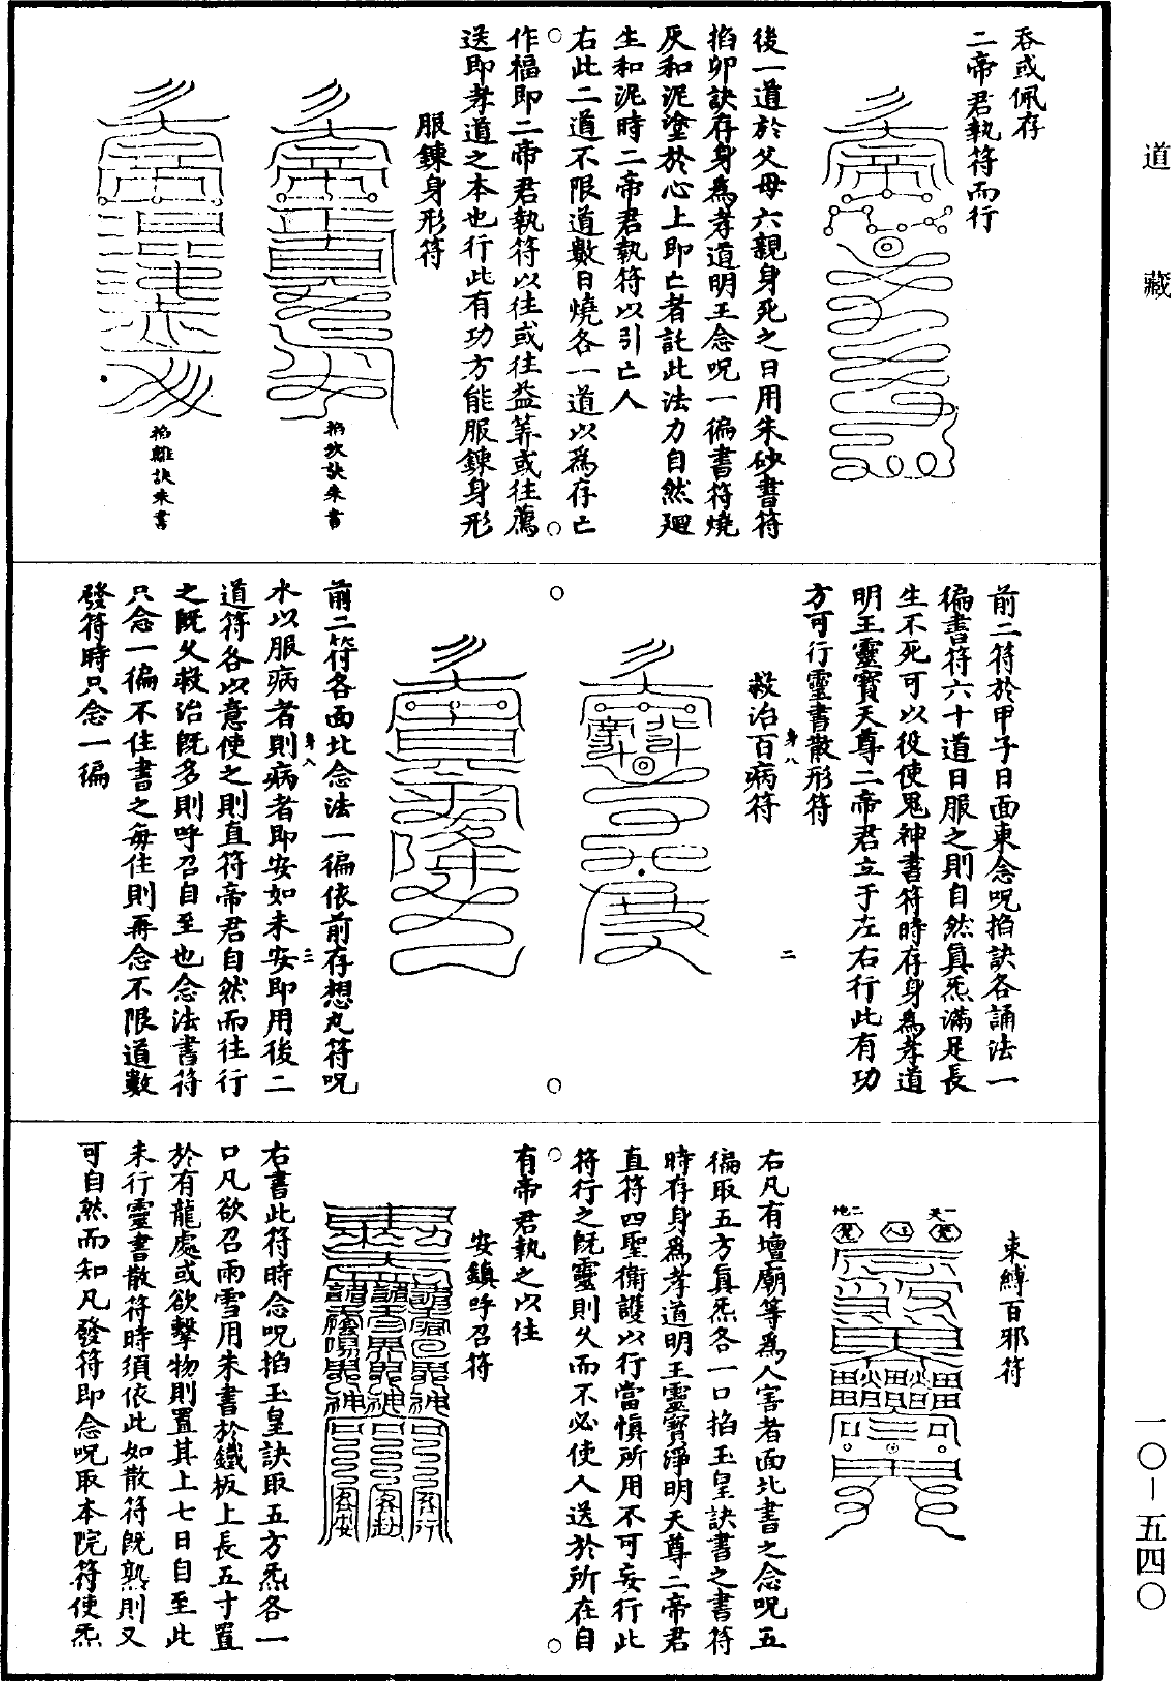 道藏
吞或佩存
二帝君執符而行
後一道於父母六親身死之日用朱砂書符
掐卯訣存身爲孝道明王念呪一徧書符燒
灰和泥塗於心上即亡者託此法力自然迴
生和泥時二帝君執符以引亡人
右此二道不限道數日燒各一道以爲存亡
作福即二帝君執符以往或往益筭或往薦
送即孝道之本也行此有功方能服鍊身形
服鍊身形符
掐坎訣朱書
掐離訣朱書
前二符於甲子日面東念呪掐訣各誦法一
徧書符六十道日服之則自然眞炁滿足長
生不死可以役使鬼神書符時存身爲孝道
明王靈寶天尊二帝君立于左右行此有功
方可行靈書散形符
身八
二
救治百病符
前二符各面北念法一徧依前存想丸符呪
身八
三
水以服病者則病者即安如未安即用後二
道符各以意使之則直符帝君自然而往行
之旣久救治旣多則呼召自至也念法書符
只念一徧不住書之每住則再念不限道數
發符時只念一徧
束縛百邪符
天一
地二
右凡有壇廟等爲人害者面北書之念呪五
徧取五方眞炁各一口掐玉皇訣書之書符
時存身爲孝道明王靈寶淨明天尊二帝君
直符四聖衛護以行當愼所用不可妄行此
符行之旣靈則久而不必使人送於所在自
有帝君執之以往
安鎮呼召符
右書此符時念呪掐玉皇訣取五方炁各一
口凡欲召雨雪用朱書於鐵板上長五寸置
於有龍處或欲擊物則置其上七日自至此
未行靈書散符時須依此如散符旣熟則又
可自然而知凡發符即念呪取本院符使炁
一〇—五四〇